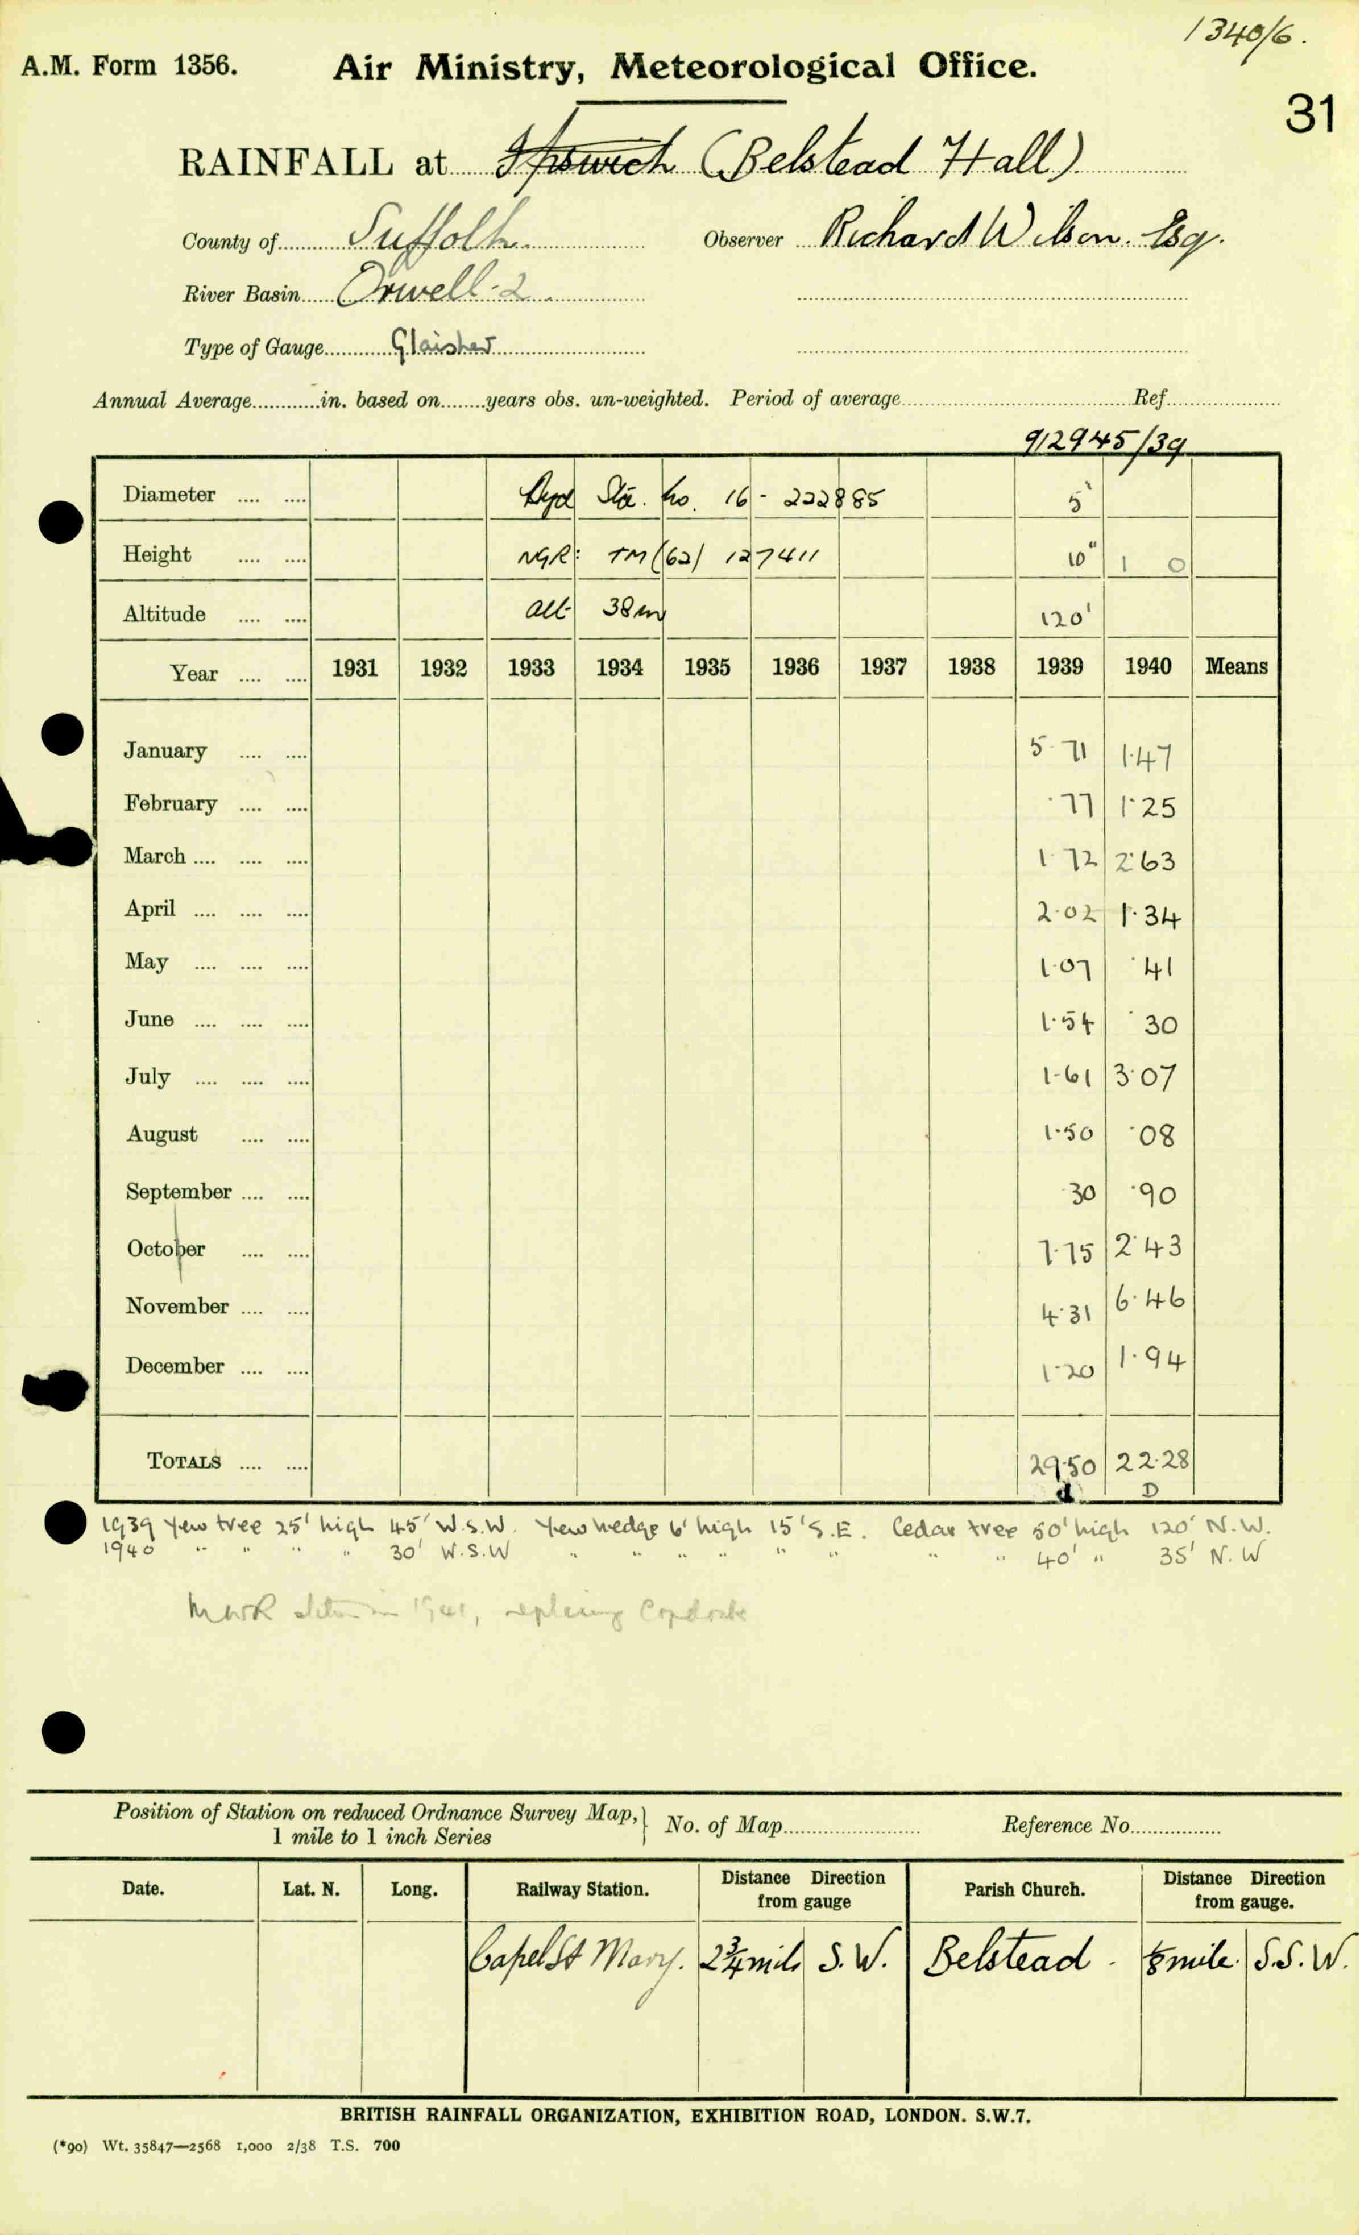 1340/6.
A.M. Form 1356. Air Ministry, Meteorological Office.
31
RAINFALL at Ipswich (Belstead Hall)
County of Suffolk. Observer Richard Wilson. Esq.
River Basin Orwell - 2.
Type of Gauge Glaisher
Annual Average in. based on years obs. un-weighted. Period of average Ref
912945/39
Diameter Sta. no. 16 - 222885 5"
Height NGR: TM (62) 127411 10" 1 0
Altitude alt 38m 120'
Year 1931 1932 1933 1934 1935 1936 1937 1938 1939 1940 Means
January 5.71 1.47
February .77 1.25
March 1.72 2.63
April 2.02 1.34
May 1.07 .41
June 1.54 .30
July 1.61 3.07
August 1.50 .08
September .30 .90
October 7.75 2.43
November 4.31 6.46
December 1.20 1.94
TOTALS 29.50 22.28
D
1939 Yew tree 25' high 45' W.S.W. Yew hedge 6' high 15' S.E. Cedar tree 50' high 120' N.W.
1940 " " " " 30' W.S.W " " " " " " " " 40' " 35' N.W
MWR station in 1941, replacing Copdock
Position of Station on reduced Ordnance Survey Map, 1 mile to 1 inch Series No. of Map Reference No.
Date. Lat. N. Long. Railway Station. Distance Direction from gauge Parish Church. Distance Direction from gauge.
Capel St Mary. 2¾ mile S.W. Belstead. ⅛ mile. S.S.W.
BRITISH RAINFALL ORGANIZATION, EXHIBITION ROAD, LONDON. S.W.7.
(*90) Wt. 35847—2568 1,000 2/38 T.S. 700